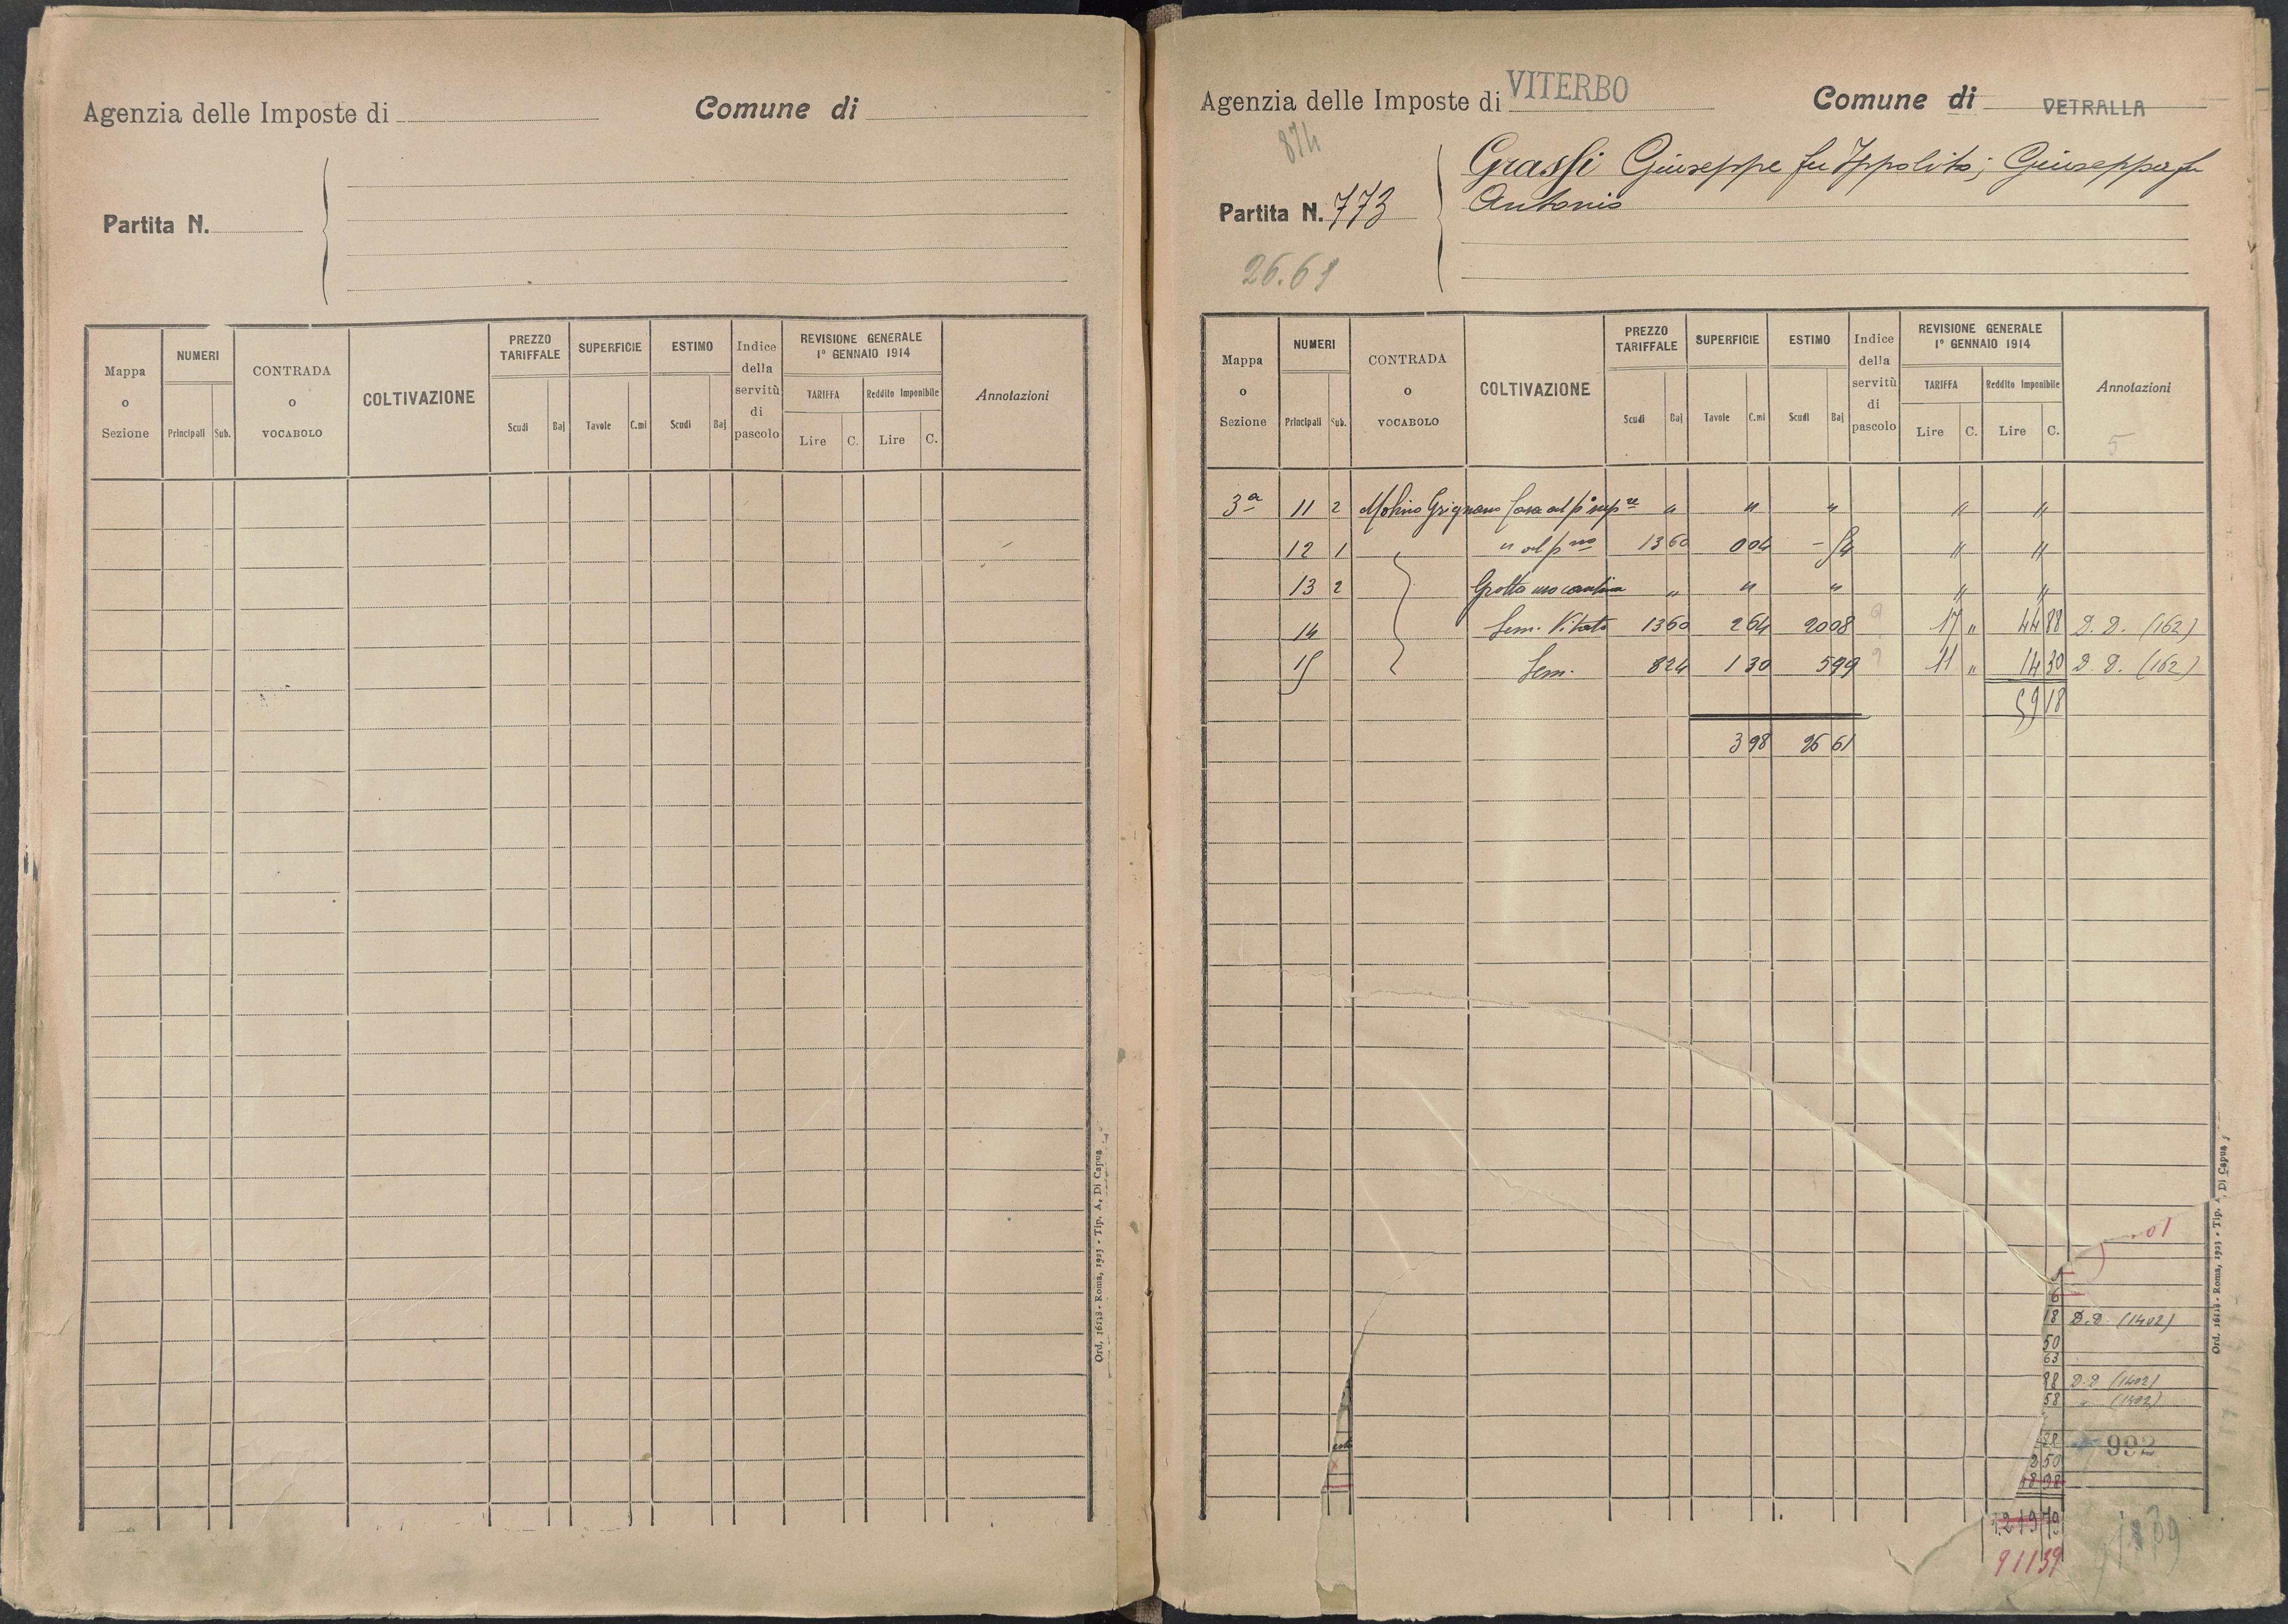 Agenzia delle Imposte di
Comune di
Partita N.
Mappa o Sezione
NUMERI
Principali Sub.
CONTRADA o VOCABOLO
COLTIVAZIONE
PREZZO TARIFFALE
Scudi Baj
SUPERFICIE
Tavole C.mi
ESTIMO
Scudi Baj
Indice della servitù di pascolo
REVISIONE GENERALE
1º GENNAIO 1914
TARIFFA
Lire C.
Reddito Imponibile
Lire C.
Annotazioni
Ord. 16518 - Roma, 1923 - Tip. A. Di Capua
Agenzia delle Imposte di VITERBO
Comune di VETRALLA
874
Grassi Giuseppe fu Ippolito; Giuseppa fu
Antonio
Partita N. 773
26.61
Mappa o Sezione
NUMERI
Principali Sub.
CONTRADA o VOCABOLO
COLTIVAZIONE
PREZZO TARIFFALE
Scudi Baj
SUPERFICIE
Tavole C.mi
ESTIMO
Scudi Baj
Indice della servitù di pascolo
REVISIONE GENERALE
1º GENNAIO 1914
TARIFFA
Lire C.
Reddito Imponibile
Lire C.
Annotazioni
5
3a 11 2 Molino Grignano Casa al pº supre " " " " "
12 1 " al pno 13 60 0 04 - 54 " "
13 2 Grotta uso cantina " " " " "
14 Sem. Vitato 13 60 2 64 20 08 17 " 44 88 D. D. (162)
15 Sem. 8 24 1 30 5 99 11 " 14 30 D. D. (162)
59 18
3 98 26 61
01
6
18 D.D. (1402)
50
63
88 D.D (1402)
58 " (1402)
992
2 50
1219 79
911 39
Ord. 16518 - Roma, 1923 - Tip. A. Di Capua